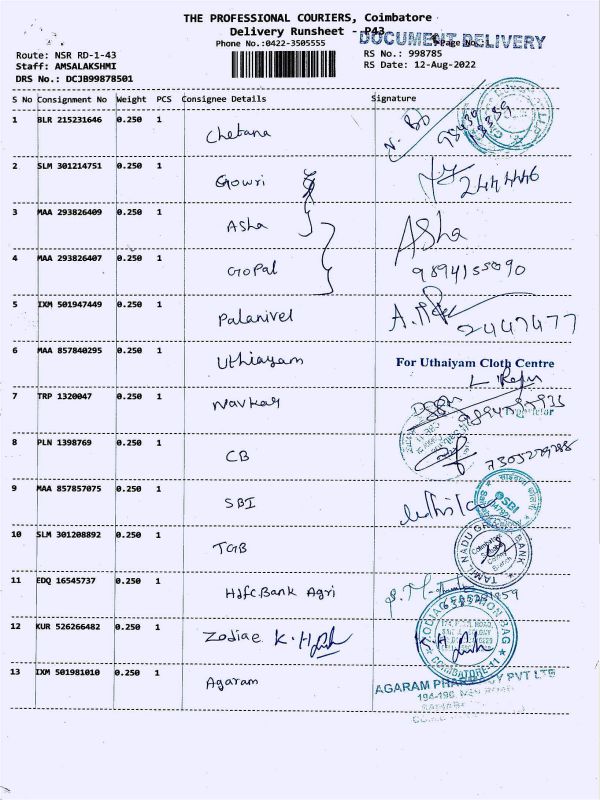 THE PROFESSIONAL COURIERS, Coimbatore
Delivery Runsheet - P43
DOCUMENT DELIVERY
Phone No.:0422-3505555
Page No.:
Route: NSR RD-1-43
RS No.: 998785
Staff: AMSALAKSHMI
RS Date: 12-Aug-2022
DRS No.: DCJB99878501
S No Consignment No Weight PCS Consignee Details Signature
1 BLR 215231646 0.250 1 Chetana
2 SLM 301214751 0.250 1 Gowri 2444446
3 MAA 293826409 0.250 1 Asha ASha
4 MAA 293826407 0.250 1 Gopal
5 IXM 501947449 0.250 1 Palanivel 2447477
6 MAA 857840295 0.250 1 Uthiayam For Uthaiyam Cloth Centre
7 TRP 1320047 0.250 1 Navkar
8 PLN 1398769 0.250 1 CB
9 MAA 857857075 0.250 1 SBI SBI
10 SLM 301208892 0.250 1 TGB TAMIL NADU BANK
11 EDQ 16545737 0.250 1 Hdfc Bank Agri
12 KUR 526266482 0.250 1 Zodiac K.H ZODIAC FASHION BAG COIMBATORE-11 K.H
13 IXM 501981010 0.250 1 Agaram AGARAM PHARMACY PVT LTD